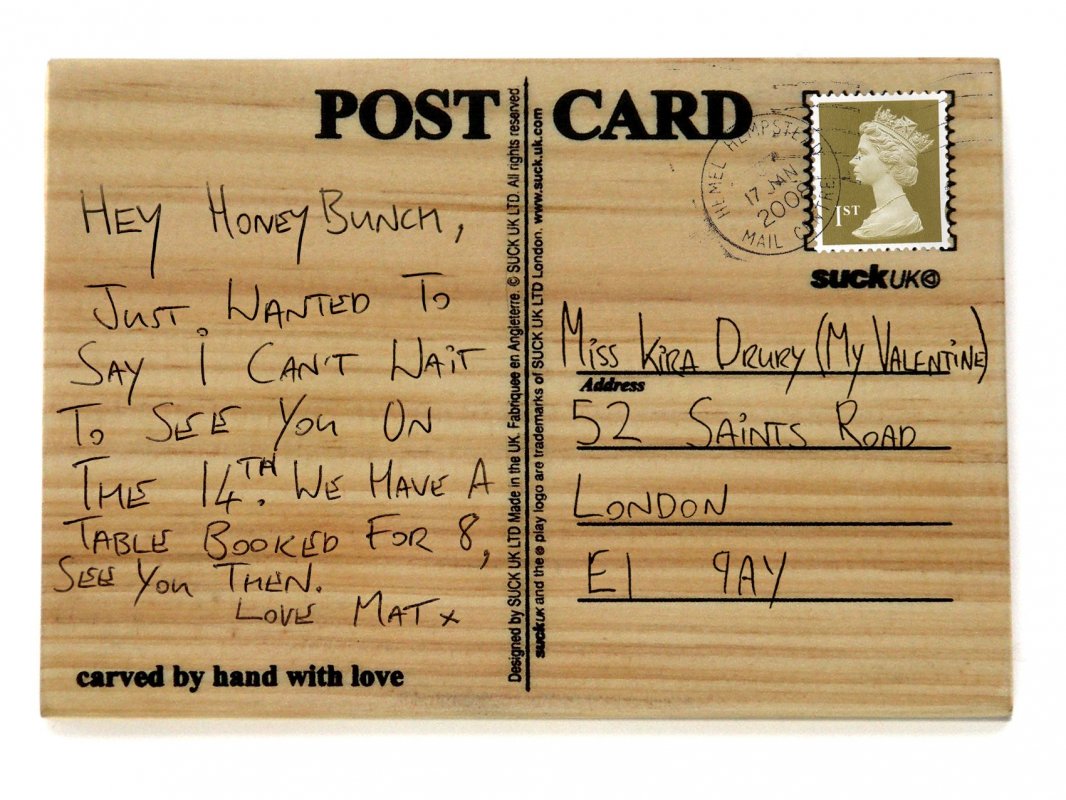 POST CARD
HEY HONEY BUNCH,
JUST. WANTED TO
SAY I CAN'T WAIT
TO SEE YOU ON
THE 14TH. WE HAVE A
TABLE BOOKED FOR 8,
SEE YOU THEN.
LOVE MAT x
carved by hand with love
Designed by SUCK UK LTD Made in the UK. Fabriquee en Angleterre. © SUCK UK LTD. All rights reserved
suckUK and the play logo are trademarks of SUCK UK LTD London. www.suck.uk.com
HEMEL HEMPSTEAD
17 JAN
2008
MAIL CENTRE
1ST
suckUK
MISS KIRA DRURY (MY VALENTINE)
Address
52 SAINTS ROAD
LONDON
E1 9AY